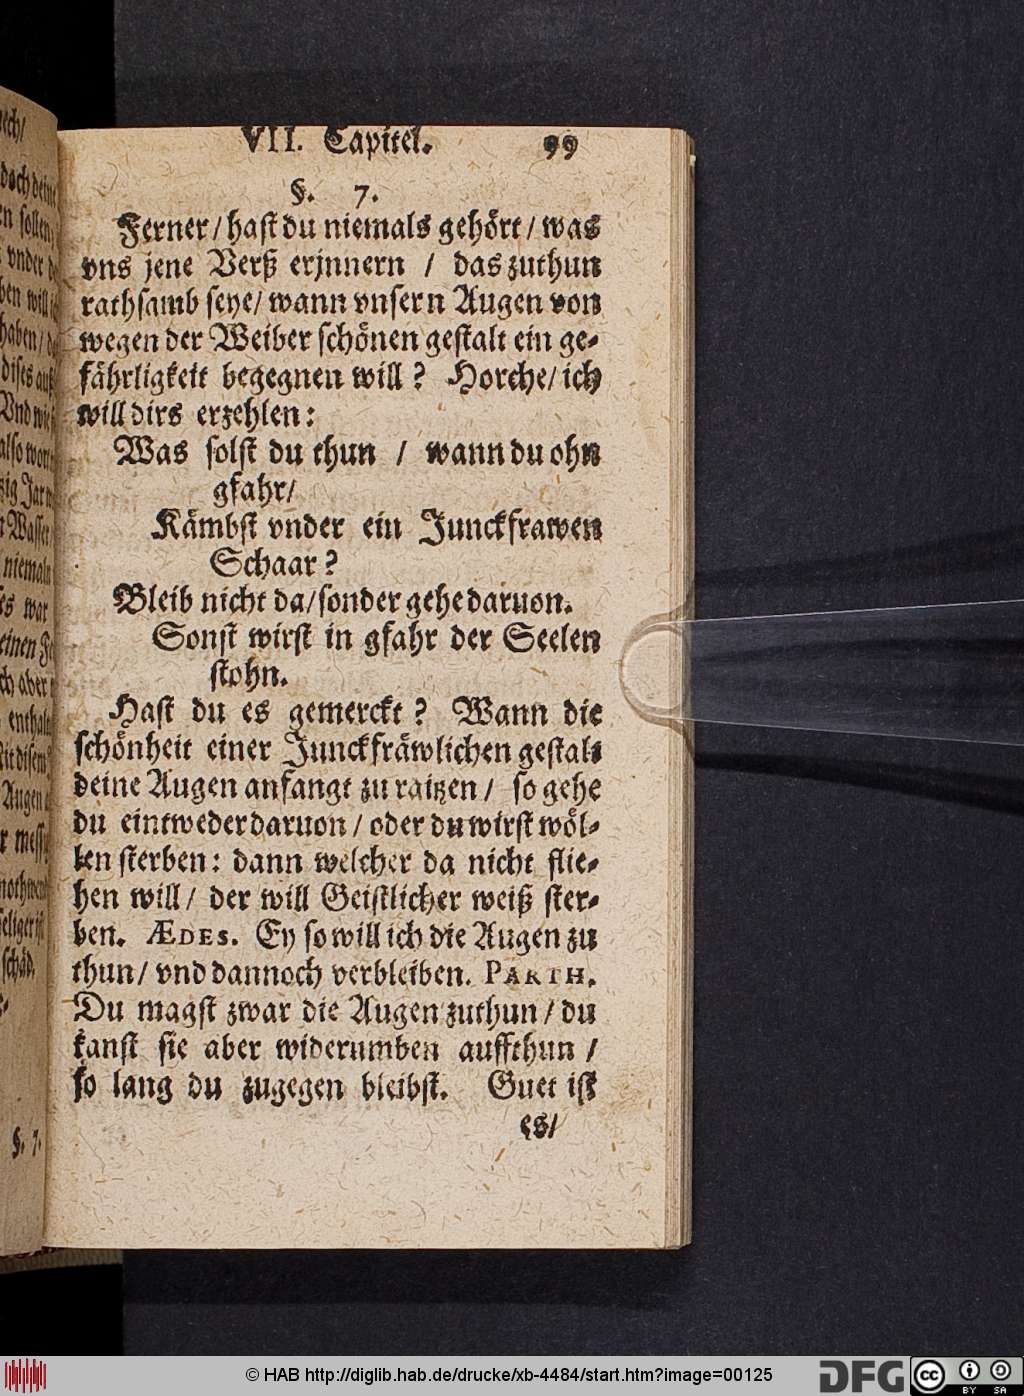 VII. Capitel. 99
§. 7.
Ferner / hast du niemals gehört / was
vns jene Verß erjnnern / das zuthun
rathsamb seye / wann vnsern Augen von
wegen der Weiber schönen gestalt ein ge-
fährligkeit begegnen will? Horche / ich
will dirs erzehlen:
Was solst du thun / wann du ohn
gfahr /
Kämbst vnder ein Junckfrawen
Schaar?
Bleib nicht da / sonder gehe daruon.
Sonst wirst in gfahr der Seelen
stohn.
Hast du es gemerckt? Wann die
schönheit einer Junckfräwlichen gestalt
deine Augen anfangt zu raitzen / so gehe
du eintweder daruon / oder du wirst wöl-
len sterben: dann welcher da nicht flie-
hen will / der will Geistlicher weiß ster-
ben. ÆDES. Ey so will ich die Augen zu
thun / vnd dannoch verbleiben. PARTH.
Du magst zwar die Augen zuthun / du
kanst sie aber widerumben auffthun /
so lang du zugegen bleibst. Guet ist
es /
§. 7.
© HAB http://diglib.hab.de/drucke/xb-4484/start.htm?image=00125
DFG
cc BY SA